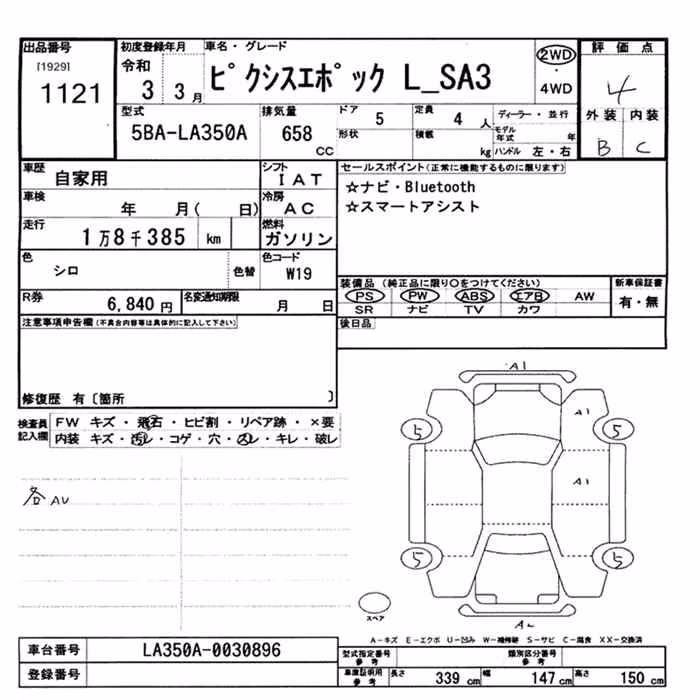 出品番号
[1929]
1121
初度登録年月
令和
3 3月
車名・グレード
ピクシスエポック L_SA3
2WD
・
4WD
評価点
4
外装 内装
B C
型式
5BA-LA350A
排気量
658
cc
ドア 5
形状
定員 4 人
積載 kg
ディーラー・並行
モデル年式 年
ハンドル 左・右
車歴
自家用
シフト
IAT
車検
年 月( 日)
冷房
AC
走行
1万8千385 km
燃料
ガソリン
色
シロ
色替
色コード
W19
R券
6,840 円
名変通知期限
月 日
セールスポイント(正常に機能するものに限ります)
☆ナビ・Bluetooth
☆スマートアシスト
装備品(純正品に限り○をつけてください)
PS PW ABS エアB AW
SR ナビ TV カワ
新車保証書
有・無
後日品
注意事項申告欄(不具合内容等は具体的に記入して下さい)
修復歴 有〔箇所 〕
検査員記入欄
FW キズ・飛石・ヒビ割・リペア跡・×要
内装 キズ・汚レ・コゲ・穴・スレ・キレ・破レ
各AU
A1
A1
5 5
A1
5 5
スペア
A-キズ E-エクボ U-凹み W-補修跡 S-サビ C-腐食 XX-交換済
車台番号
LA350A-0030896
登録番号
型式指定番号
参考
類別区分番号
参考
車庫証明用
参考
長さ 339 cm 幅 147 cm 高さ 150 cm